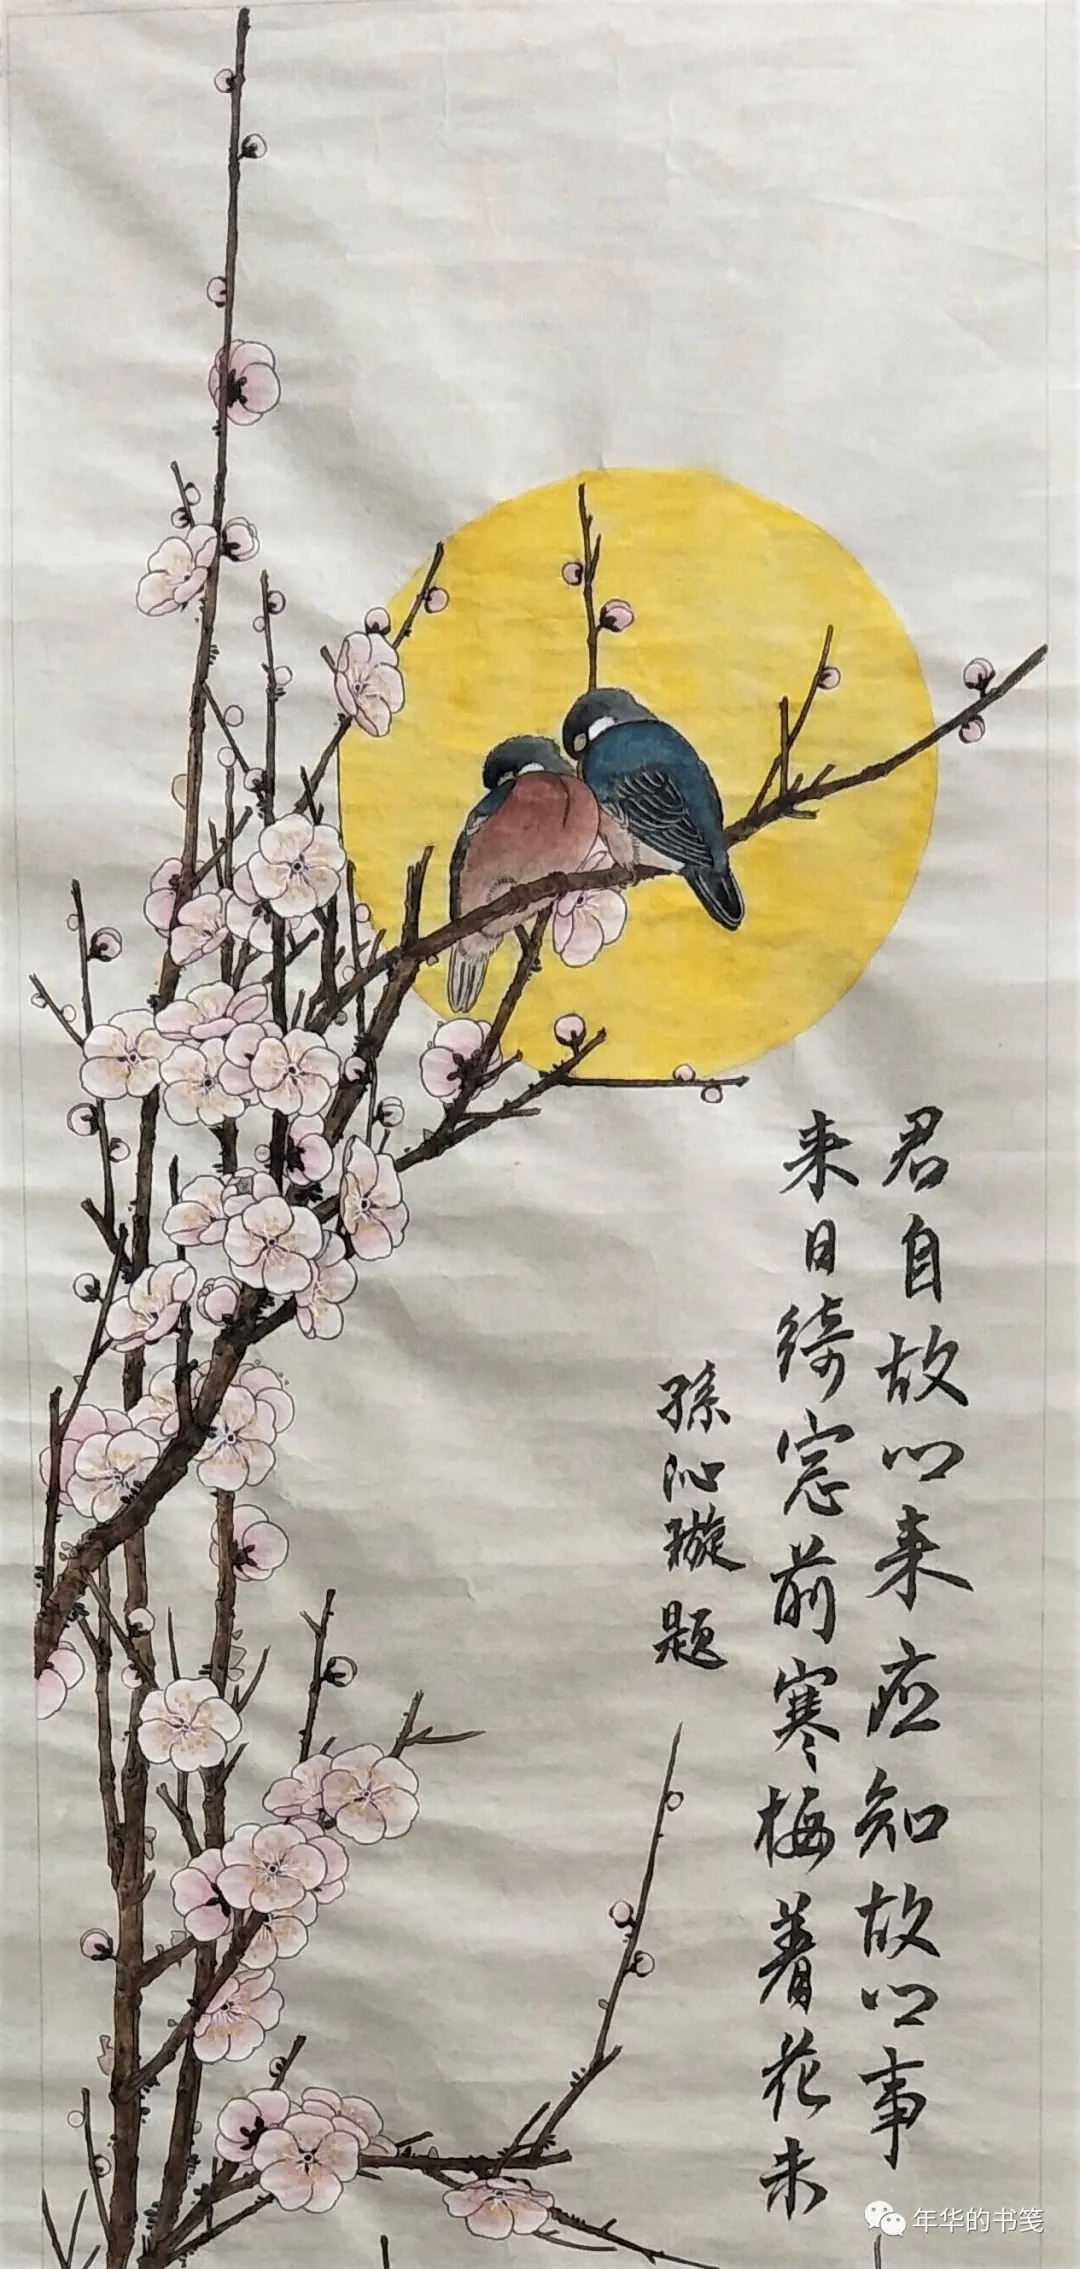 君自故乡来应知故乡事
来日绮窓前寒梅着花未
孫沁璇题
年华的书笺